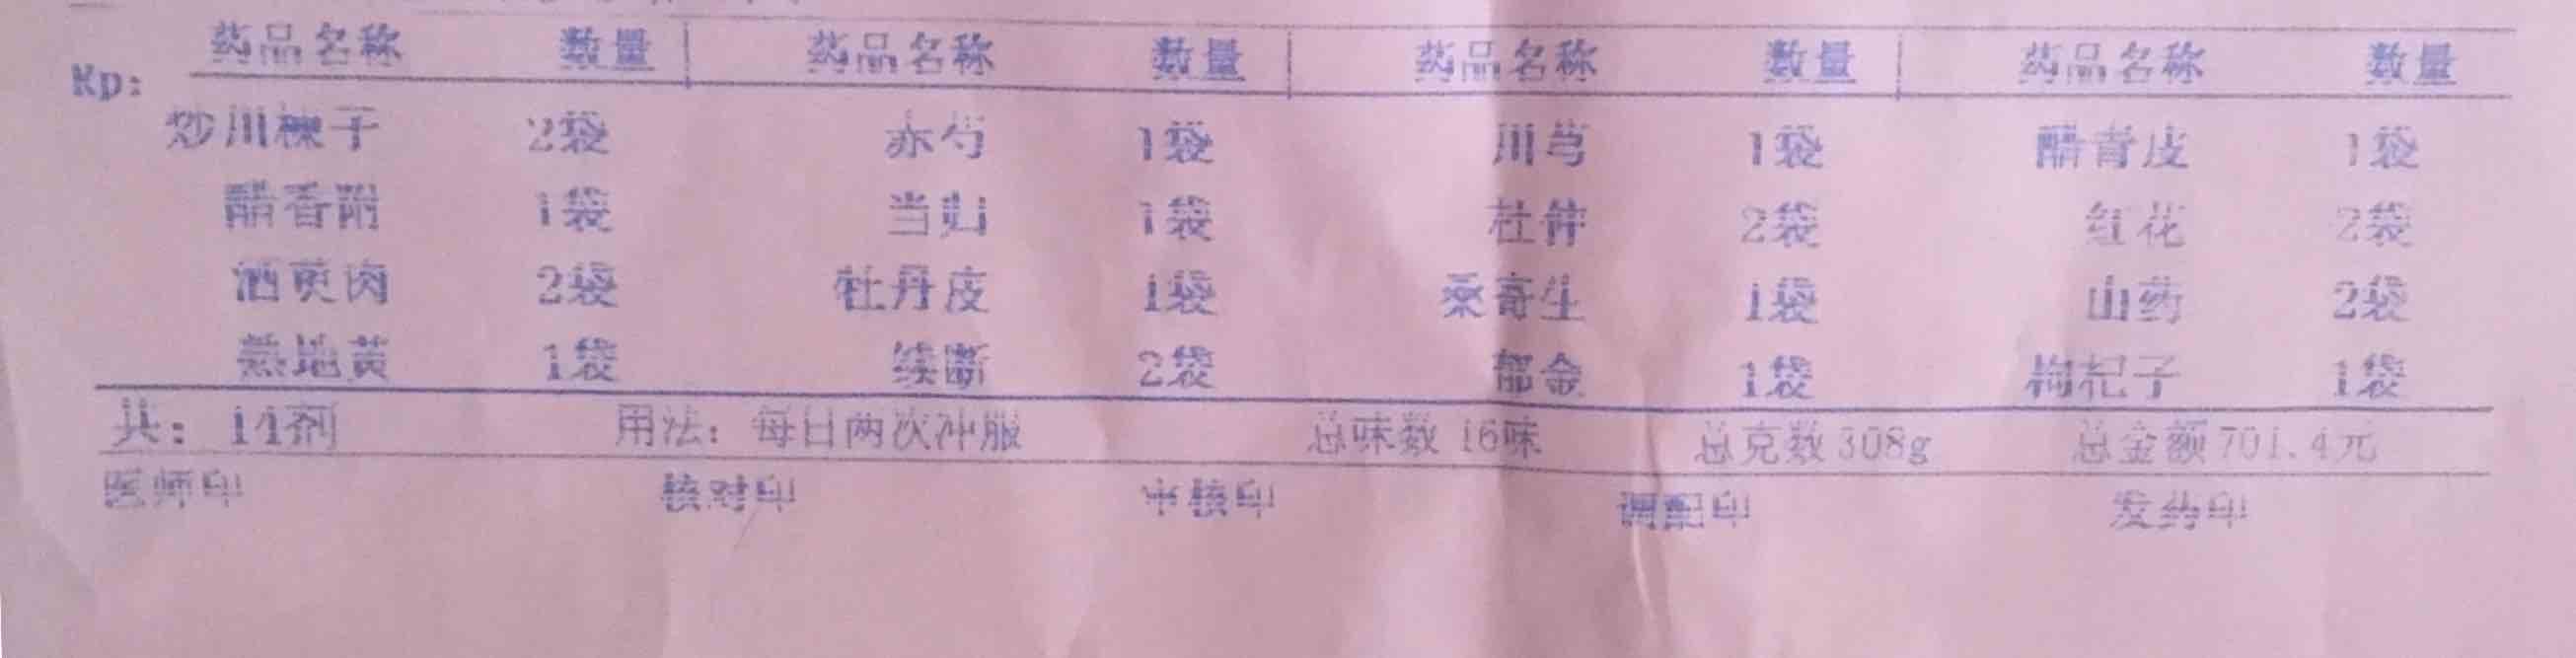 药品名称 数量 药品名称 数量 药品名称 数量 药品名称 数量
Rp:
炒川楝子 2袋 赤芍 1袋 川芎 1袋 醋青皮 1袋
醋香附 1袋 当归 1袋 杜仲 2袋 红花 2袋
酒萸肉 2袋 牡丹皮 1袋 桑寄生 1袋 山药 2袋
熟地黄 1袋 续断 2袋 郁金 1袋 枸杞子 1袋
共: 14剂 用法: 每日两次冲服 总味数 16味 总克数 308g 总金额 701.4元
医师印 核对印 审核印 调配印 发药印